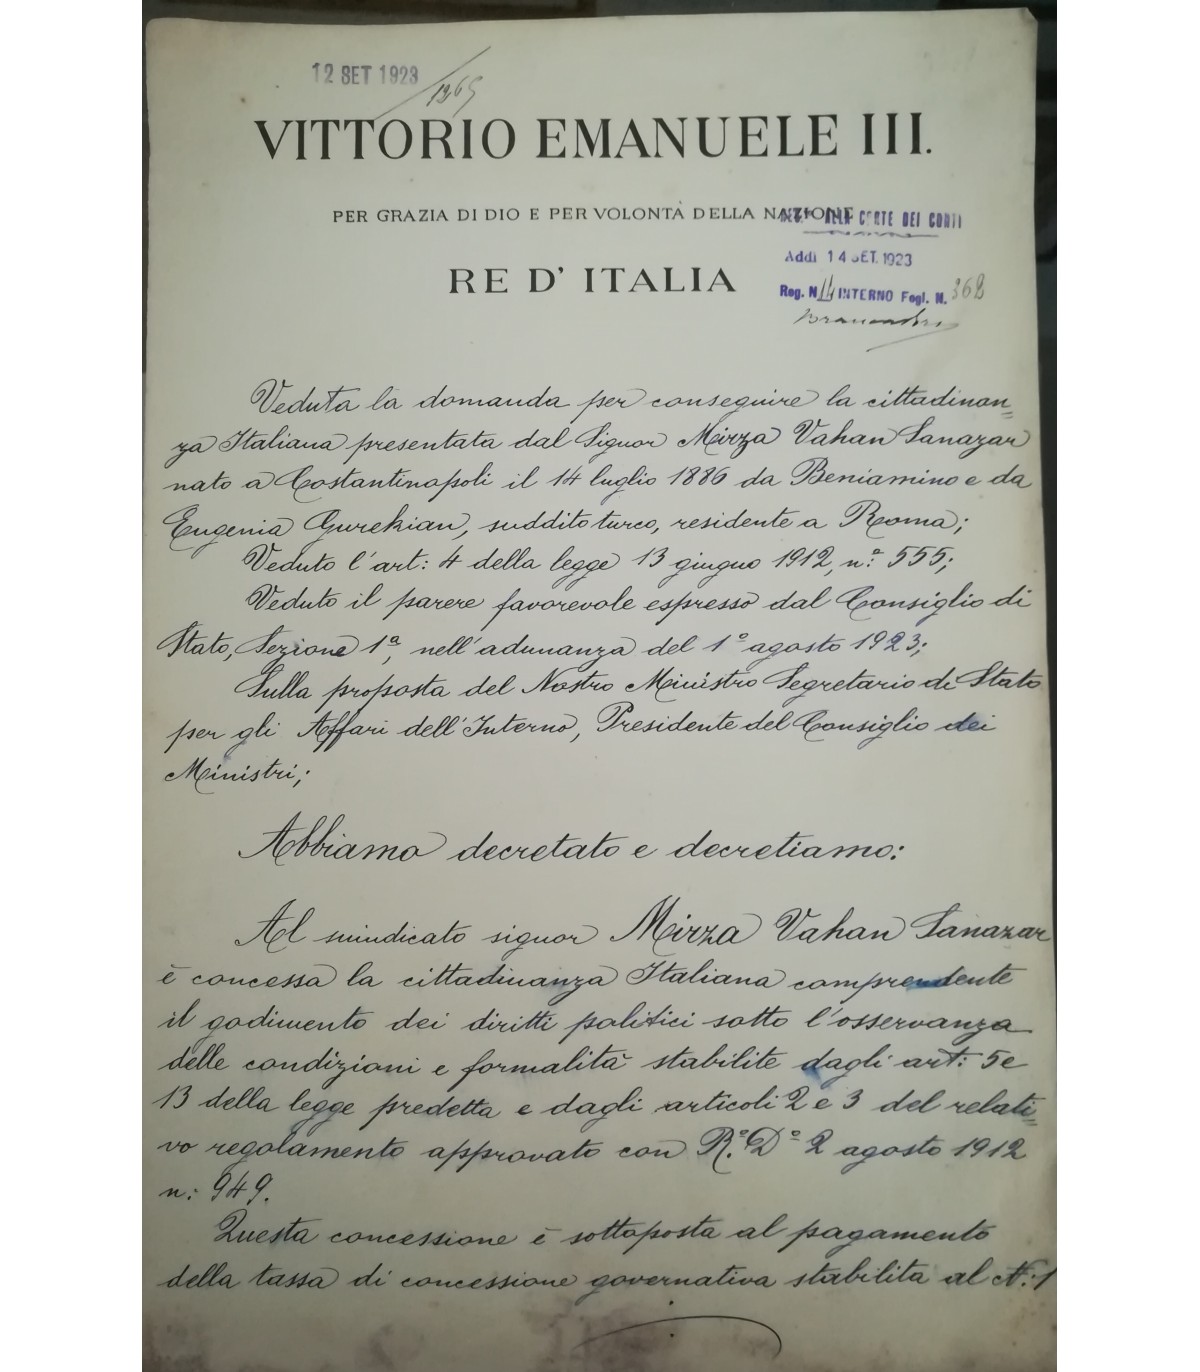 12 SET 1923
1365
VITTORIO EMANUELE III.
PER GRAZIA DI DIO E PER VOLONTÀ DELLA NAZIONE
ALLA CORTE DEI CONTI
RE D' ITALIA
Addì 14 SET. 1923
Reg. N. 11 INTERNO Fogl. N. 362
Veduta la domanda per conseguire la cittadinan=
za Italiana presentata dal Signor Mirza Vahan Sanazar
nato a Costantinopoli il 14 luglio 1886 da Beniamino e da
Eugenia Gurekian, suddito turco, residente a Roma;
Veduto l'art: 4 della legge 13 giugno 1912, n.° 555;
Veduto il parere favorevole espresso dal Consiglio di
Stato, Sezione 1ª, nell'adunanza del 1° agosto 1923;
Sulla proposta del Nostro Ministro Segretario di Stato
per gli Affari dell'Interno, Presidente del Consiglio dei
Ministri;
Abbiamo decretato e decretiamo:
Al suindicato signor Mirza Vahan Sanazar
è concessa la cittadinanza Italiana comprendente
il godimento dei diritti politici sotto l'osservanza
delle condizioni e formalità stabilite dagli art: 5 e
13 della legge predetta e dagli articoli 2 e 3 del relati=
vo regolamento approvato con R.° D.° 2 agosto 1912
n: 949.
Questa concessione è sottoposta al pagamento
della tassa di concessione governativa stabilita al N: 1